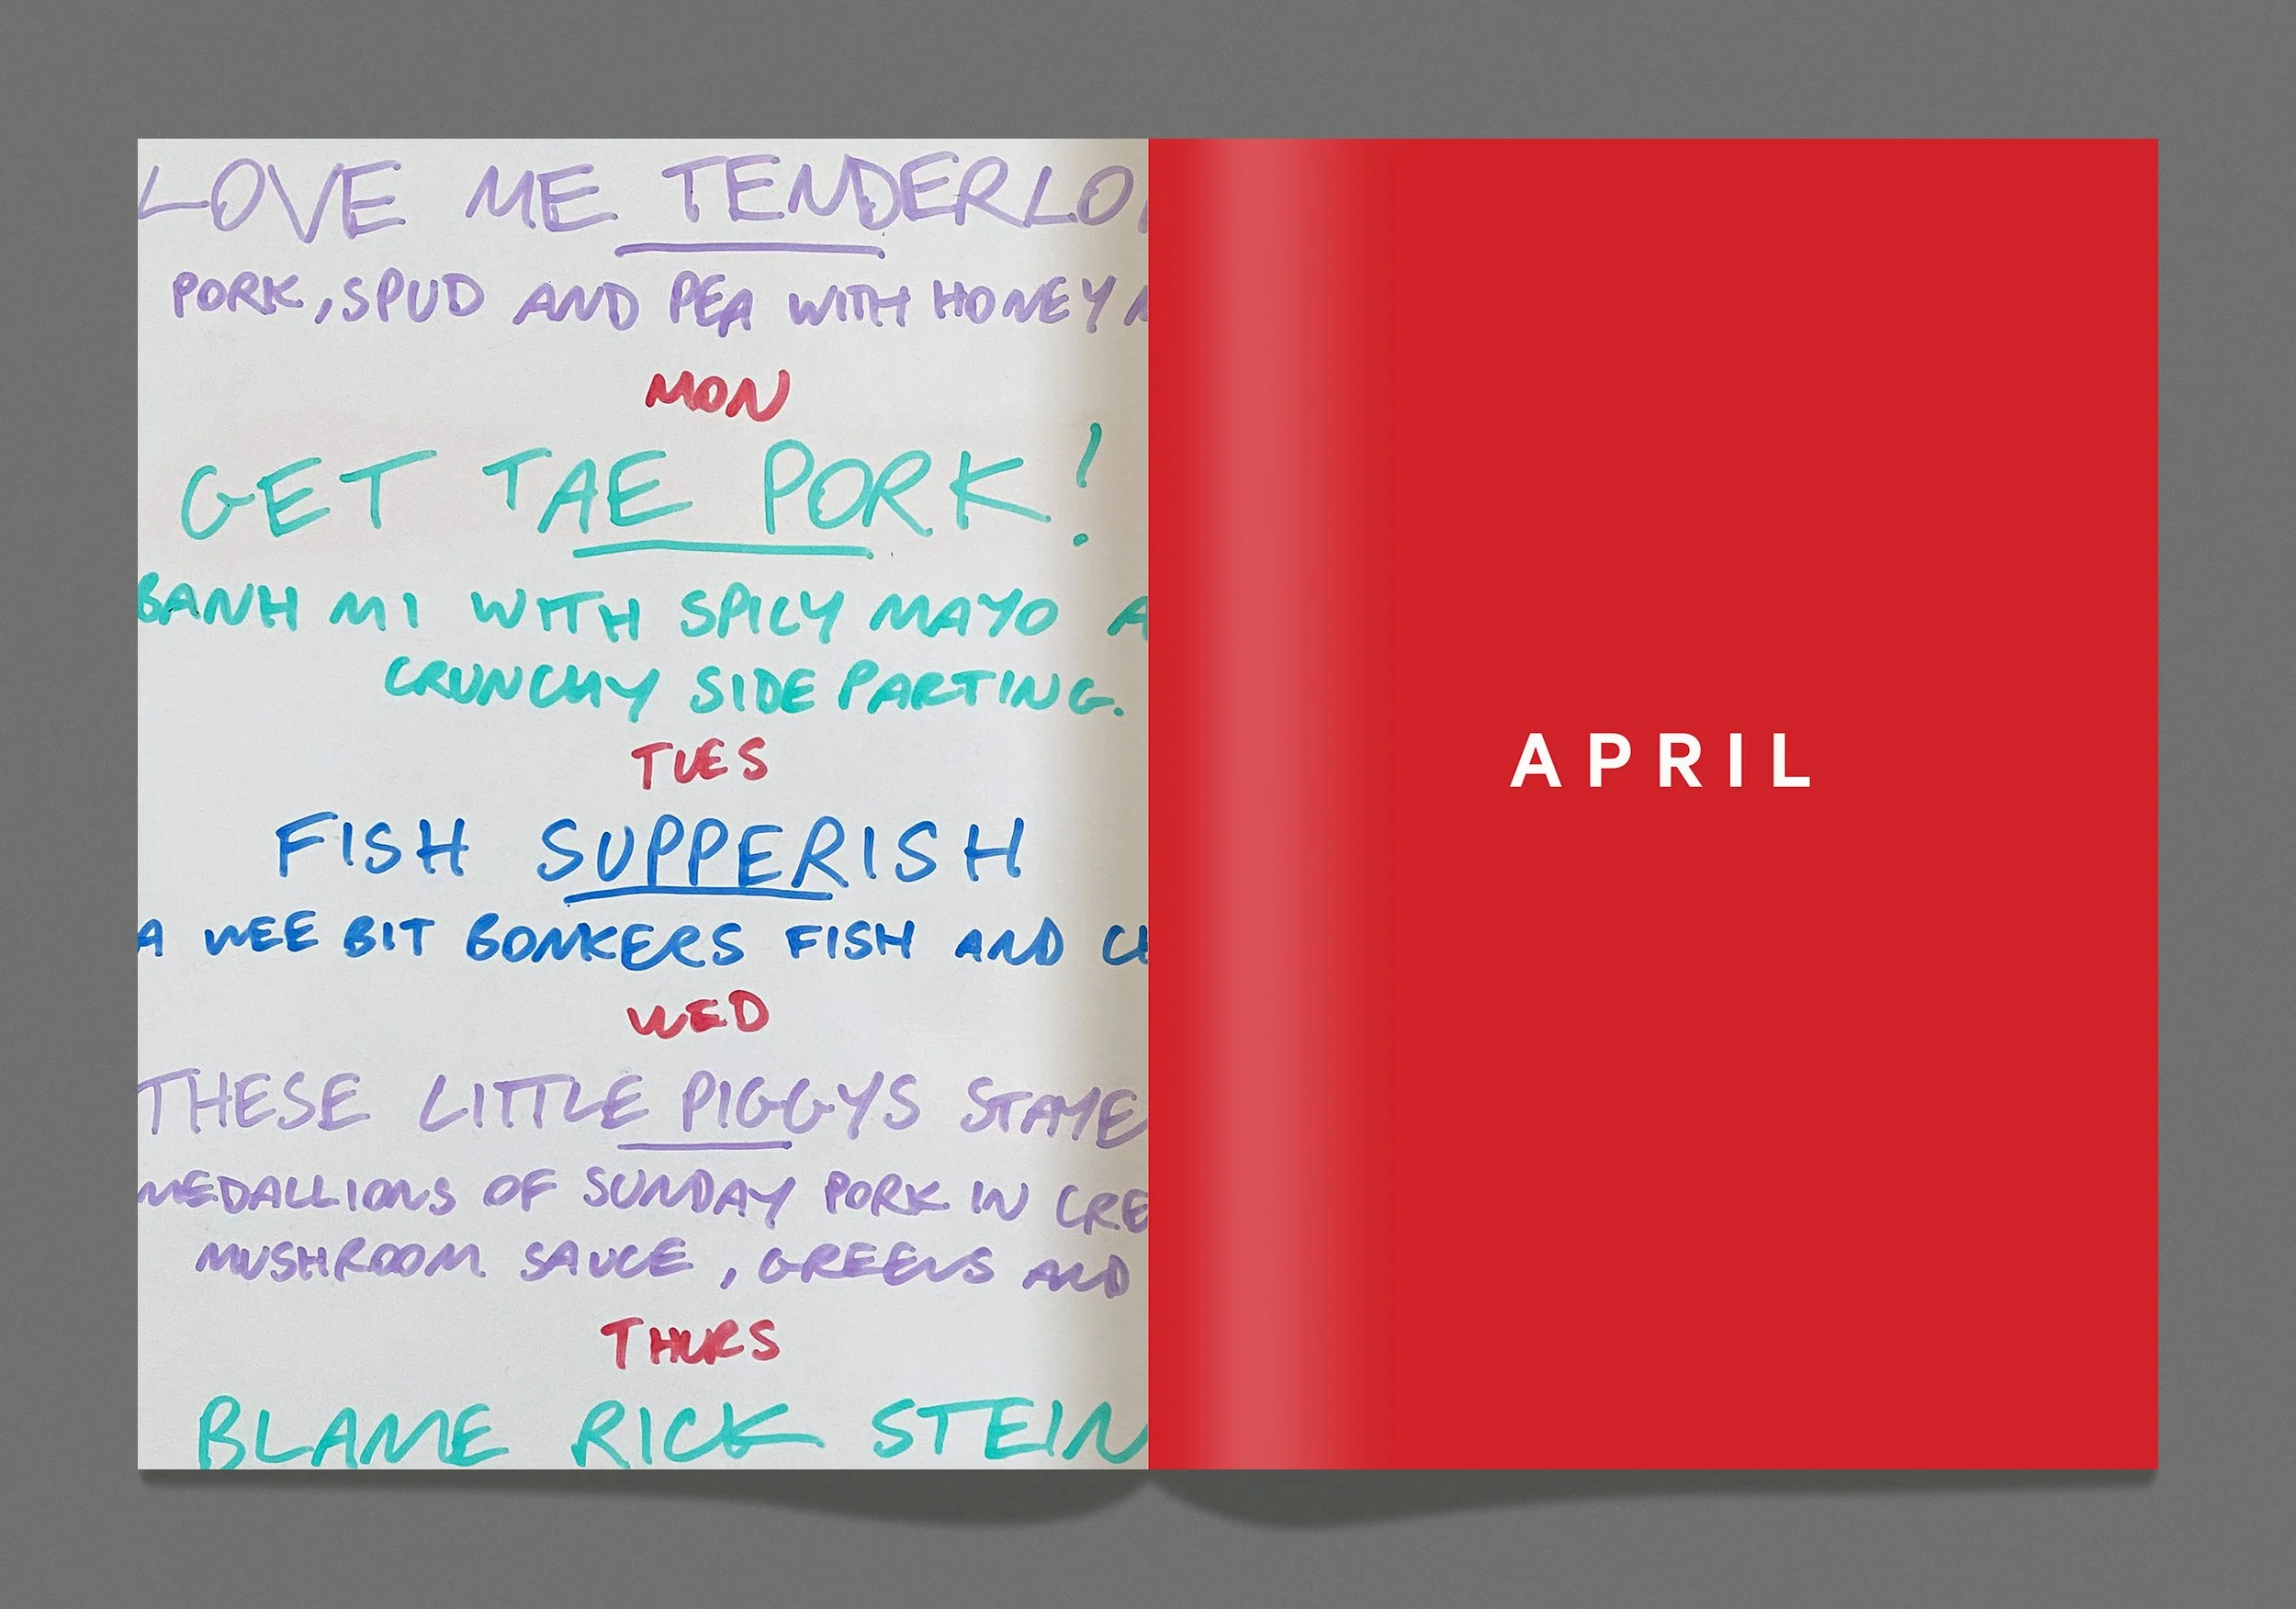 LOVE ME TENDERLO
PORK, SPUD AND PEA WITH HONEY
MON
GET TAE PORK!
BANH MI WITH SPICY MAYO A
CRUNCHY SIDE PARTING.
TUES
FISH SUPPERISH
A WEE BIT BONKERS FISH AND
WED
THESE LITTLE PIGGYS STAYE
MEDALLIONS OF SUNDAY PORK IN CRE
MUSHROOM SAUCE, GREENS AND
THURS
BLAME RICK STEIN
APRIL